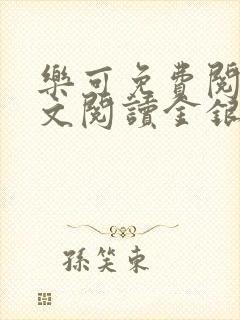 樂可免費閱
文閱讀全銀
孫笑東